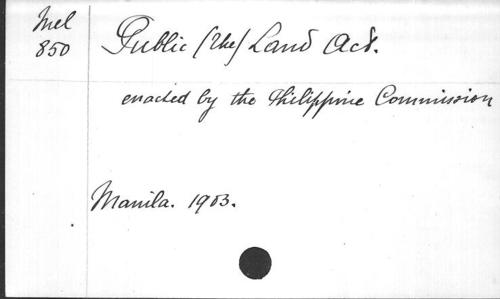 Mel
850
Public (The) Land Act.
enacted by the Philippine Commission
Manila. 1903.